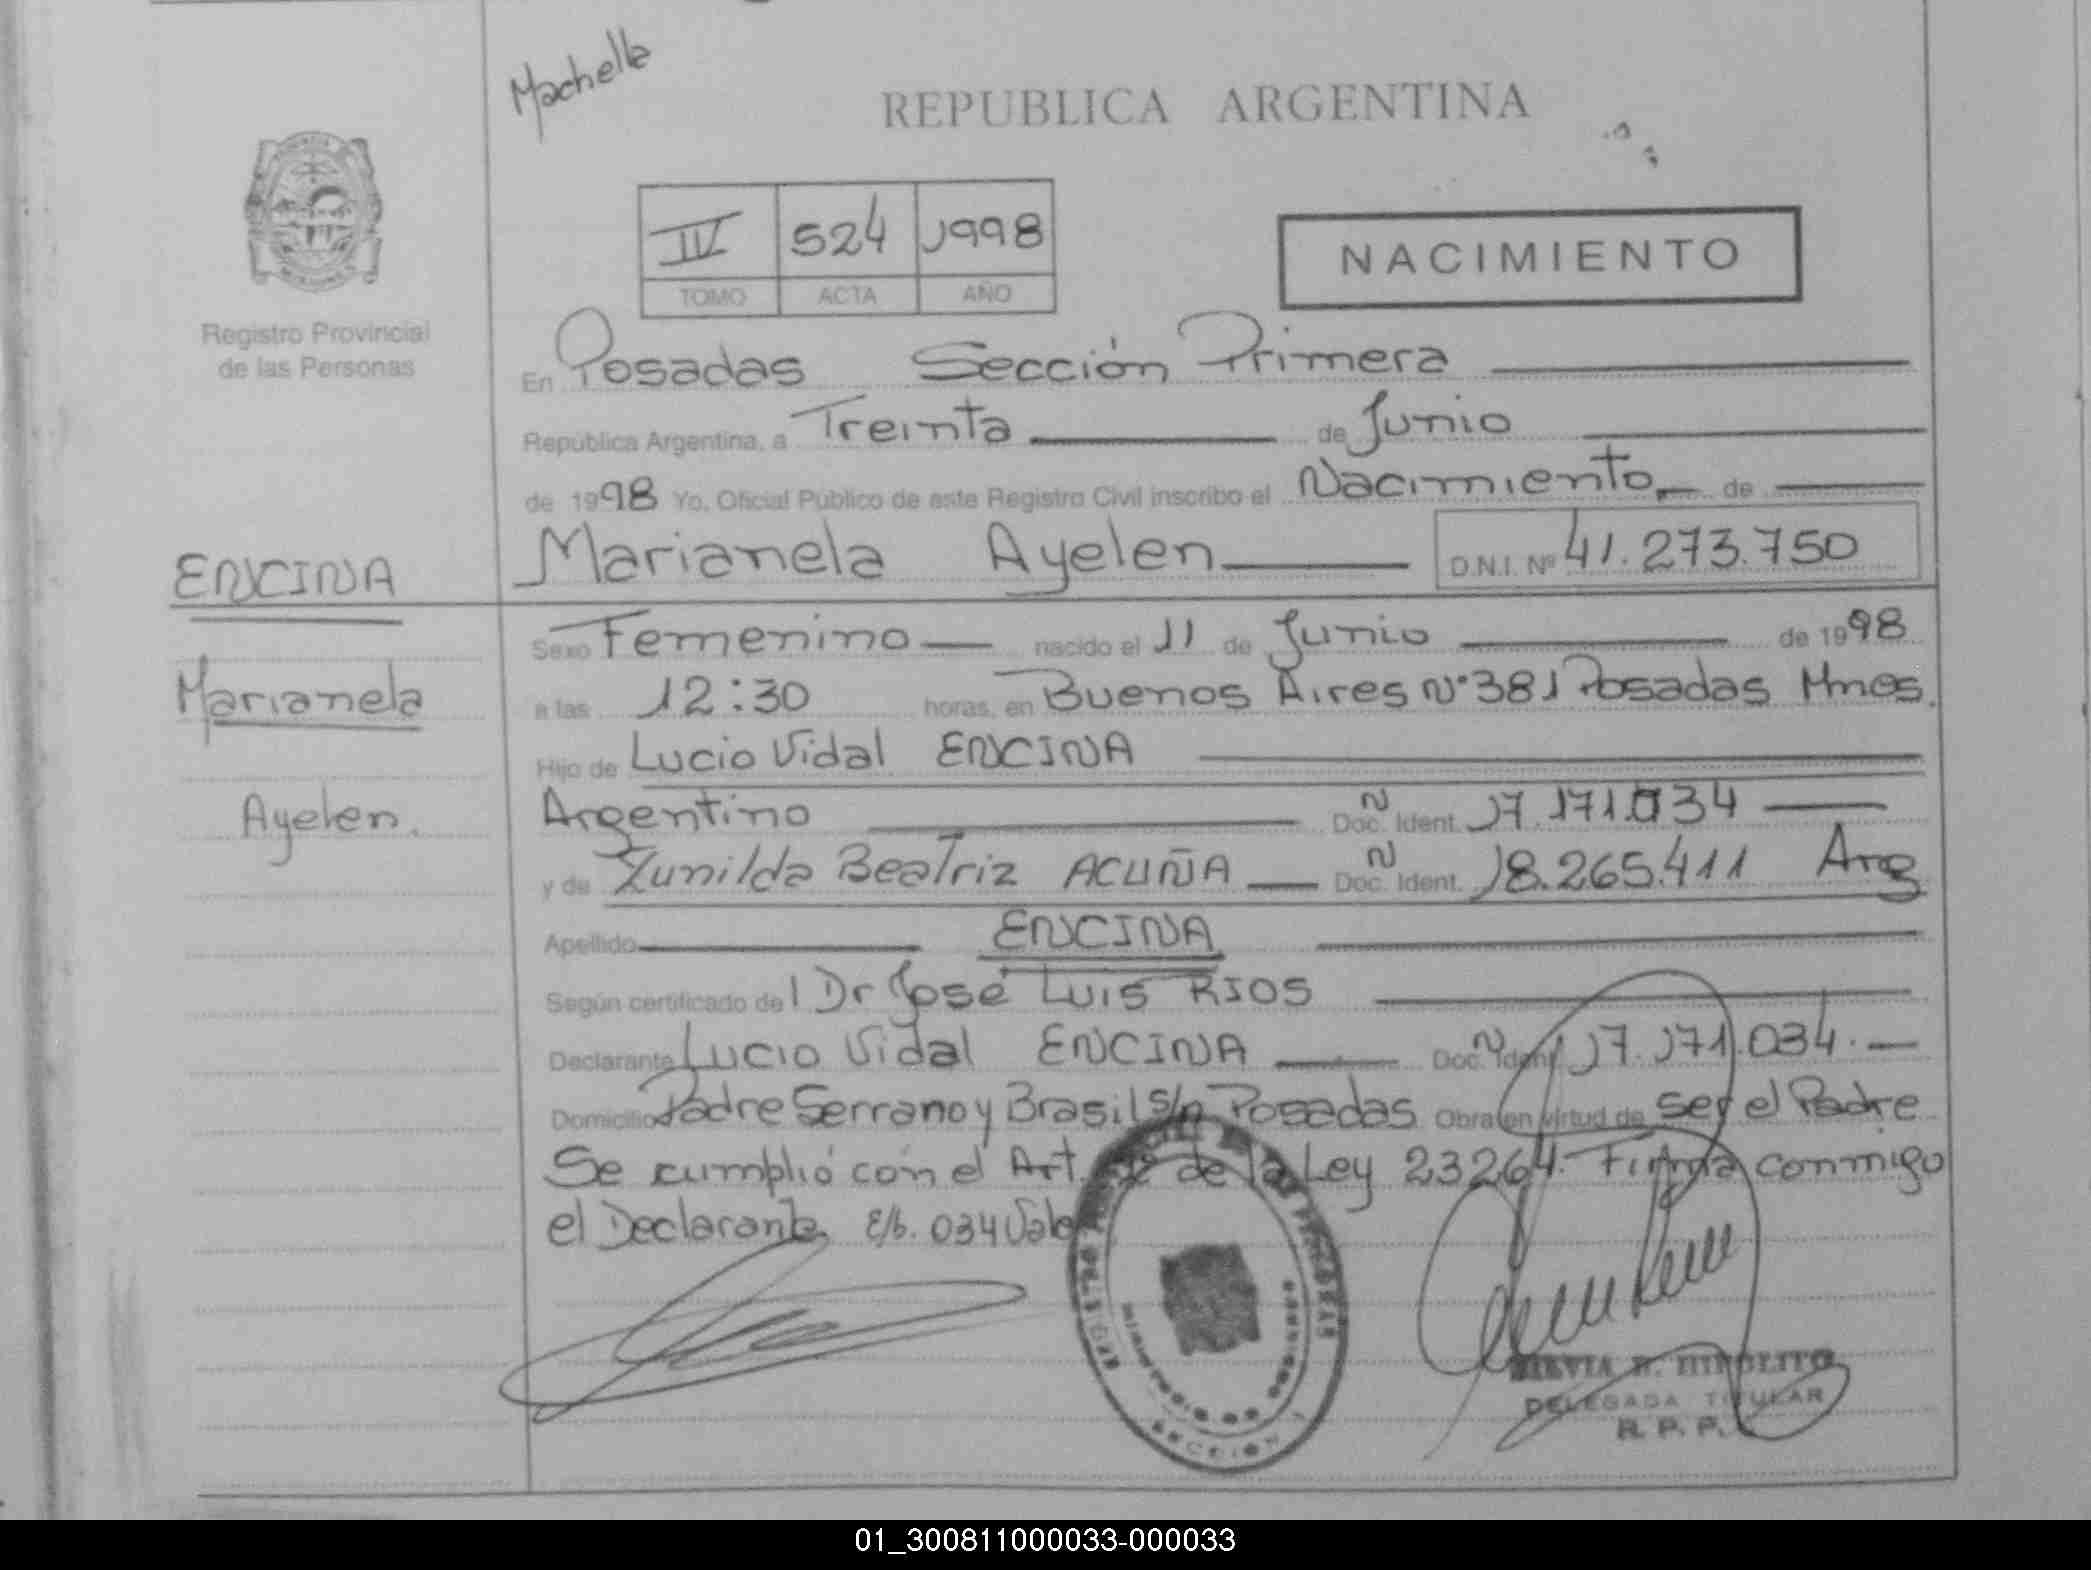 Machella
REPUBLICA ARGENTINA
IV 524 1998
TOMO ACTA AÑO
NACIMIENTO
Registro Provincial
de las Personas
En Posadas Sección Primera
República Argentina, a Treinta de Junio
de 1998 Yo, Oficial Público de este Registro Civil inscribo el Nacimiento de
Marianela Ayelen D.N.I. Nº 41.273.750
ENCINA
Marianela
Ayelen.
Sexo Femenino nacido el 11 de Junio de 1998
a las 12:30 horas, en Buenos Aires Nº 381 Posadas Mnes.
Hijo de Lucio Vidal ENCINA
Argentino Doc. N Ident. 17.171.034
y de Zunilda Beatriz ACUÑA Doc. N Ident. 18.265.411 Arg
Apellido ENCINA
Según certificado del Dr José Luis RIOS
Declarante Lucio Vidal ENCINA Doc. N Ident 17.171.034.
Domicilio Padre Serrano y Brasil s/n Posadas Obra en virtud de ser el Padre
Se cumplió con el Art. de la Ley 23264. Firma conmigo
el Declarante. E/b. 034 Vale
SECCION
HIPOLITO
DELEGADA TITULAR
R. P. P.
01_300811000033-000033